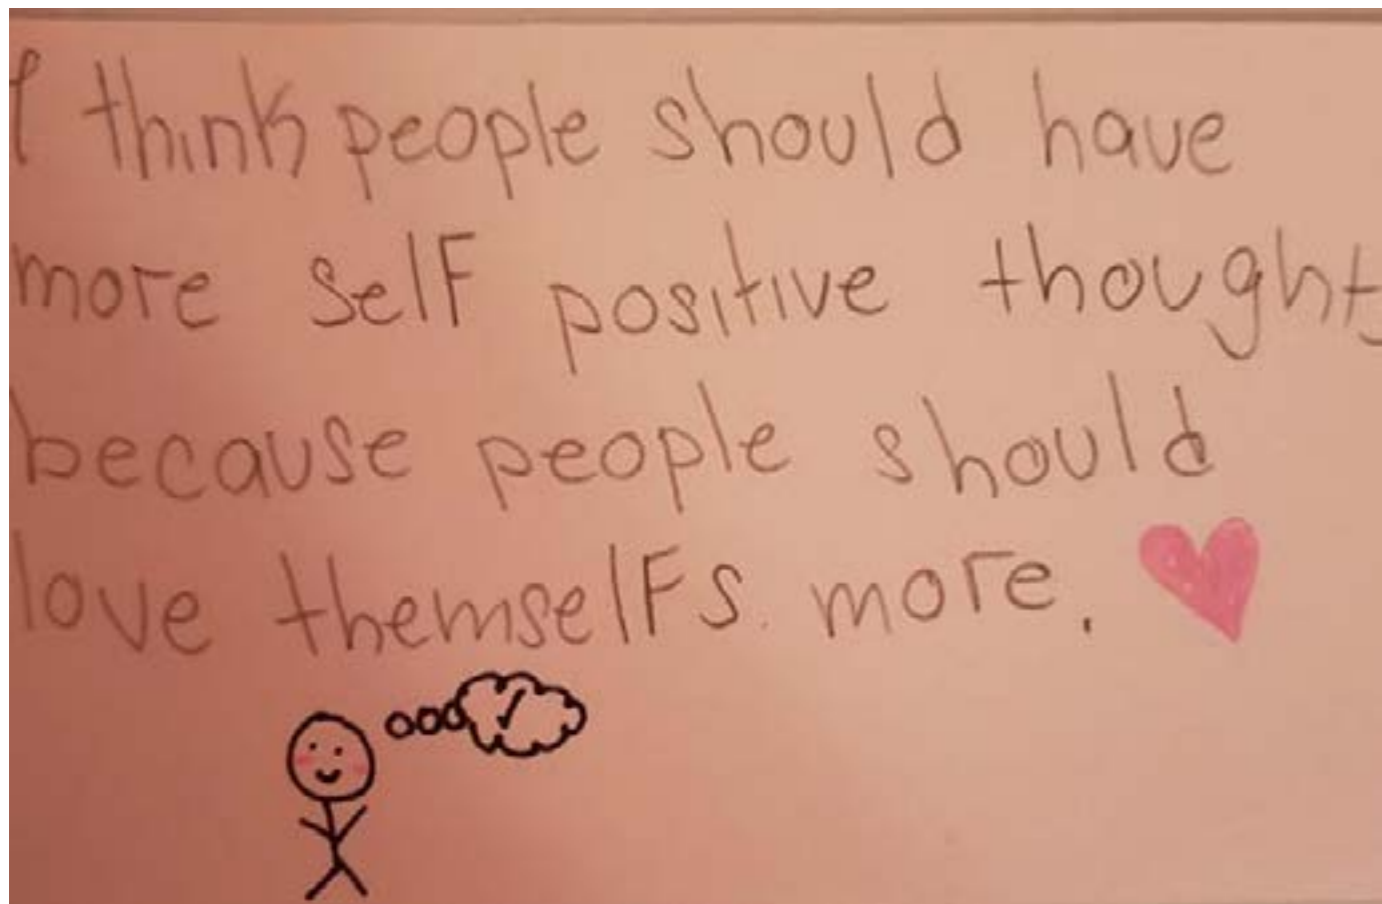 I think people should have
more self positive thoughts
because people should
love themselfs more.